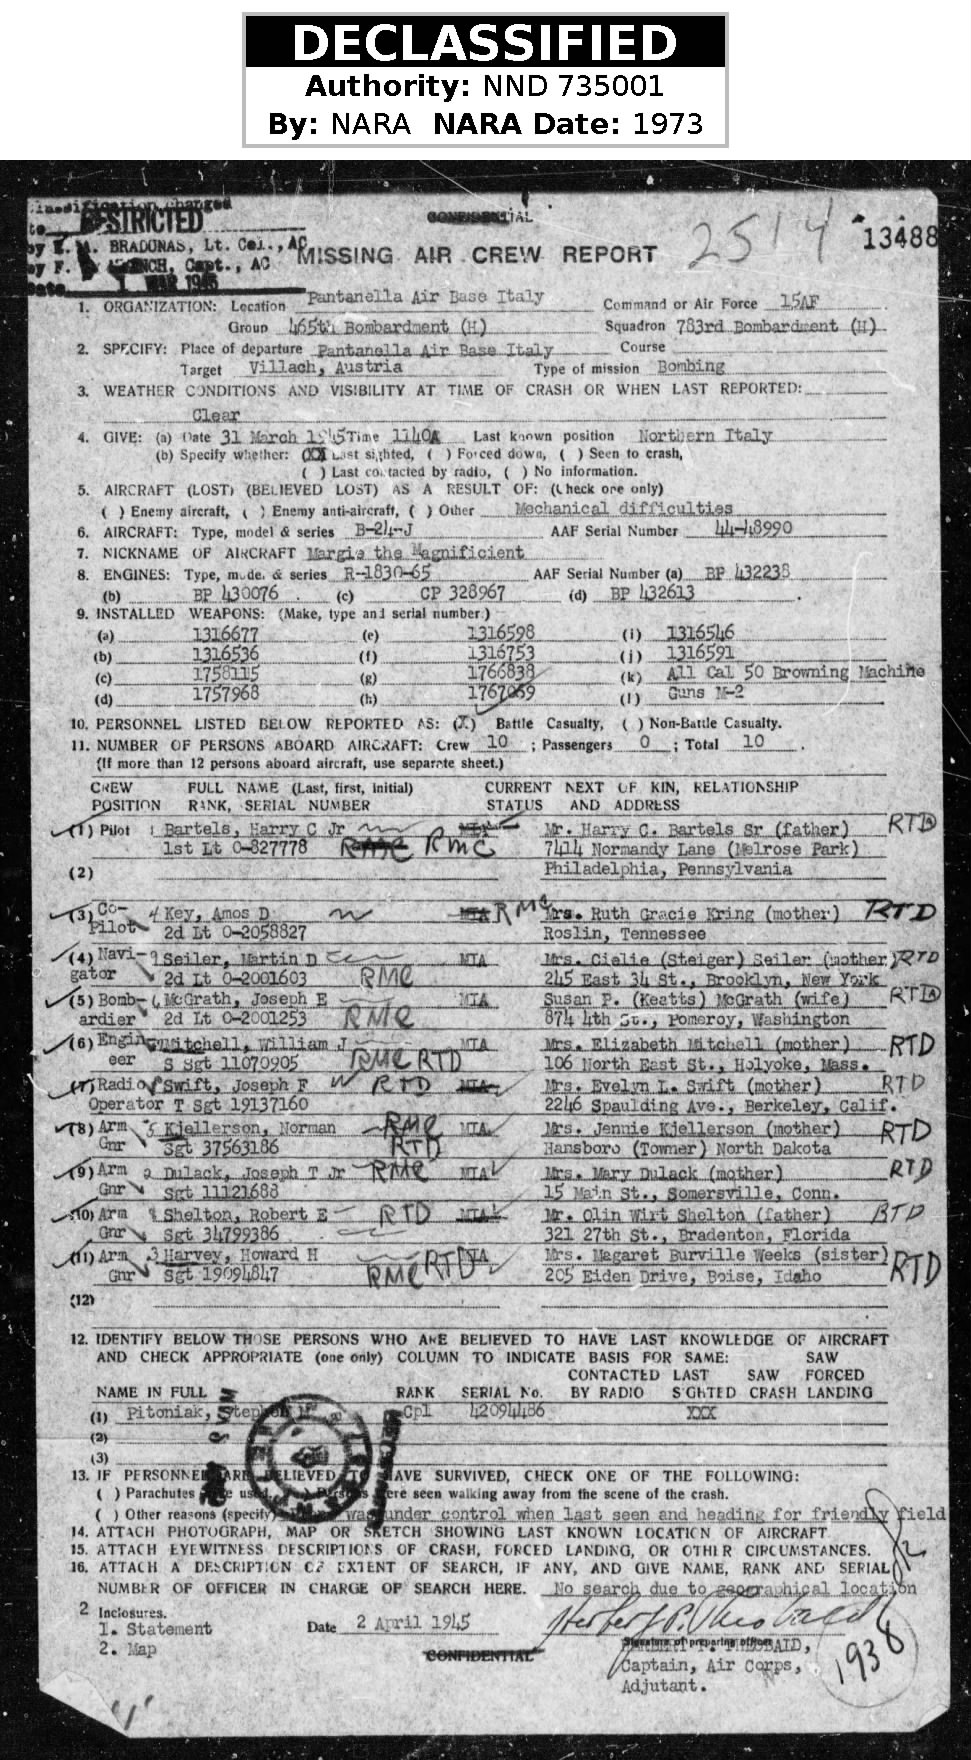 DECLASSIFIED
Authority: NND 735001
By: NARA NARA Date: 1973
Classification changed
to RESTRICTED
CONFIDENTIAL
2514
13488
by E. A. BRADUNAS, Lt. Col., AC
by F. Capt., AC
Date 1 MAR 1946
MISSING AIR CREW REPORT
1. ORGANIZATION: Location Pantanella Air Base Italy Command or Air Force 15AF
Group 465th Bombardment (H) Squadron 783rd Bombardment (H)
2. SPECIFY: Place of departure Pantanella Air Base Italy Course
Target Villach, Austria Type of mission Bombing
3. WEATHER CONDITIONS AND VISIBILITY AT TIME OF CRASH OR WHEN LAST REPORTED:
Clear
4. GIVE: (a) Date 31 March 1945 Time 1140A Last known position Northern Italy
(b) Specify whether: (XX) Last sighted, ( ) Forced down, ( ) Seen to crash,
( ) Last contacted by radio, ( ) No information.
5. AIRCRAFT (LOST) (BELIEVED LOST) AS A RESULT OF: (Check one only)
( ) Enemy aircraft, ( ) Enemy anti-aircraft, ( ) Other Mechanical difficulties
6. AIRCRAFT: Type, model & series B-24-J AAF Serial Number 44-48990
7. NICKNAME OF AIRCRAFT Margie the Magnificient
8. ENGINES: Type, mode. & series R-1830-65 AAF Serial Number (a) BP 432238
(b) BP 430076 . (c) CP 328967 (d) BP 432613 .
9. INSTALLED WEAPONS: (Make, type and serial number)
(a) 1316677 (e) 1316598 (i) 1316546
(b) 1316536 (f) 1316753 (j) 1316591
(c) 1758115 (g) 1766838 (k) All Cal 50 Browning Machine
(d) 1757968 (h) 1767059 (l) Guns M-2
10. PERSONNEL LISTED BELOW REPORTED AS: (X) Battle Casualty, ( ) Non-Battle Casualty.
11. NUMBER OF PERSONS ABOARD AIRCRAFT: Crew 10 ; Passengers 0 ; Total 10 .
(If more than 12 persons aboard aircraft, use separate sheet.)
CREW FULL NAME (Last, first, initial) CURRENT NEXT OF KIN, RELATIONSHIP
POSITION RANK, SERIAL NUMBER STATUS AND ADDRESS
(1) Pilot Bartels, Harry C Jr MIA Mr. Harry C. Bartels Sr (father) RTD
1st Lt O-827778 RMC RMC 7414 Normandy Lane (Melrose Park)
(2) Philadelphia, Pennsylvania
(3) Co- 4 Key, Amos D MIA RMC Mrs. Ruth Gracie Kring (mother) RTD
Pilot 2d Lt O-2058827 Roslin, Tennessee
(4) Navi- 9 Seiler, Martin D MIA Mrs. Cielie (Steiger) Seiler (mother) RTD
gator 2d Lt O-2001603 RMC 245 East 34 St., Brooklyn, New York
(5) Bomb- 6 McGrath, Joseph E MIA Susan P. (Keatts) McGrath (wife) RTD
ardier 2d Lt O-2001253 RMC 874 4th St., Pomeroy, Washington
(6) Engin- Mitchell, William J MIA Mrs. Elizabeth Mitchell (mother) RTD
eer S Sgt 11070905 RMC RTD 106 North East St., Holyoke, Mass.
(7) Radio Swift, Joseph F RTD MIA Mrs. Evelyn L. Swift (mother) RTD
Operator T Sgt 19137160 2246 Spaulding Ave., Berkeley, Calif.
(8) Arm 5 Kjellerson, Norman RMC MIA Mrs. Jennie Kjellerson (mother) RTD
Gnr Sgt 37563186 RTD Hansboro (Towner) North Dakota
(9) Arm 2 Dulack, Joseph T Jr RMC MIA Mrs. Mary Dulack (mother) RTD
Gnr Sgt 11121688 15 Main St., Somersville, Conn.
(10) Arm 8 Shelton, Robert E RTD MIA Mr. Olin Wirt Shelton (father) RTD
Gnr Sgt 34799386 321 27th St., Bradenton, Florida
(11) Arm 3 Harvey, Howard H RTD MIA Mrs. Magaret Burville Weeks (sister) RTD
Gnr Sgt 19094847 RMC 205 Eiden Drive, Boise, Idaho
(12)
12. IDENTIFY BELOW THOSE PERSONS WHO ARE BELIEVED TO HAVE LAST KNOWLEDGE OF AIRCRAFT
AND CHECK APPROPRIATE (one only) COLUMN TO INDICATE BASIS FOR SAME: SAW
CONTACTED LAST SAW FORCED
NAME IN FULL RANK SERIAL No. BY RADIO SIGHTED CRASH LANDING
(1) Pitoniak, Stephen M Cpl 42094486 XXX
(2)
(3)
13. IF PERSONNEL ARE BELIEVED TO HAVE SURVIVED, CHECK ONE OF THE FOLLOWING:
( ) Parachutes were used, ( ) Persons were seen walking away from the scene of the crash.
( ) Other reasons (specify) was under control when last seen and heading for friendly field
14. ATTACH PHOTOGRAPH, MAP OR SKETCH SHOWING LAST KNOWN LOCATION OF AIRCRAFT
15. ATTACH EYEWITNESS DESCRIPTIONS OF CRASH, FORCED LANDING, OR OTHER CIRCUMSTANCES.
16. ATTACH A DESCRIPTION OF EXTENT OF SEARCH, IF ANY, AND GIVE NAME, RANK AND SERIAL
NUMBER OF OFFICER IN CHARGE OF SEARCH HERE. No search due to geographical location
2 Inclosures.
1. Statement Date 2 April 1945
2. Map
Signature of preparing officer
HERBERT P. THEOBALD,
CONFIDENTIAL
Captain, Air Corps,
Adjutant.
1938